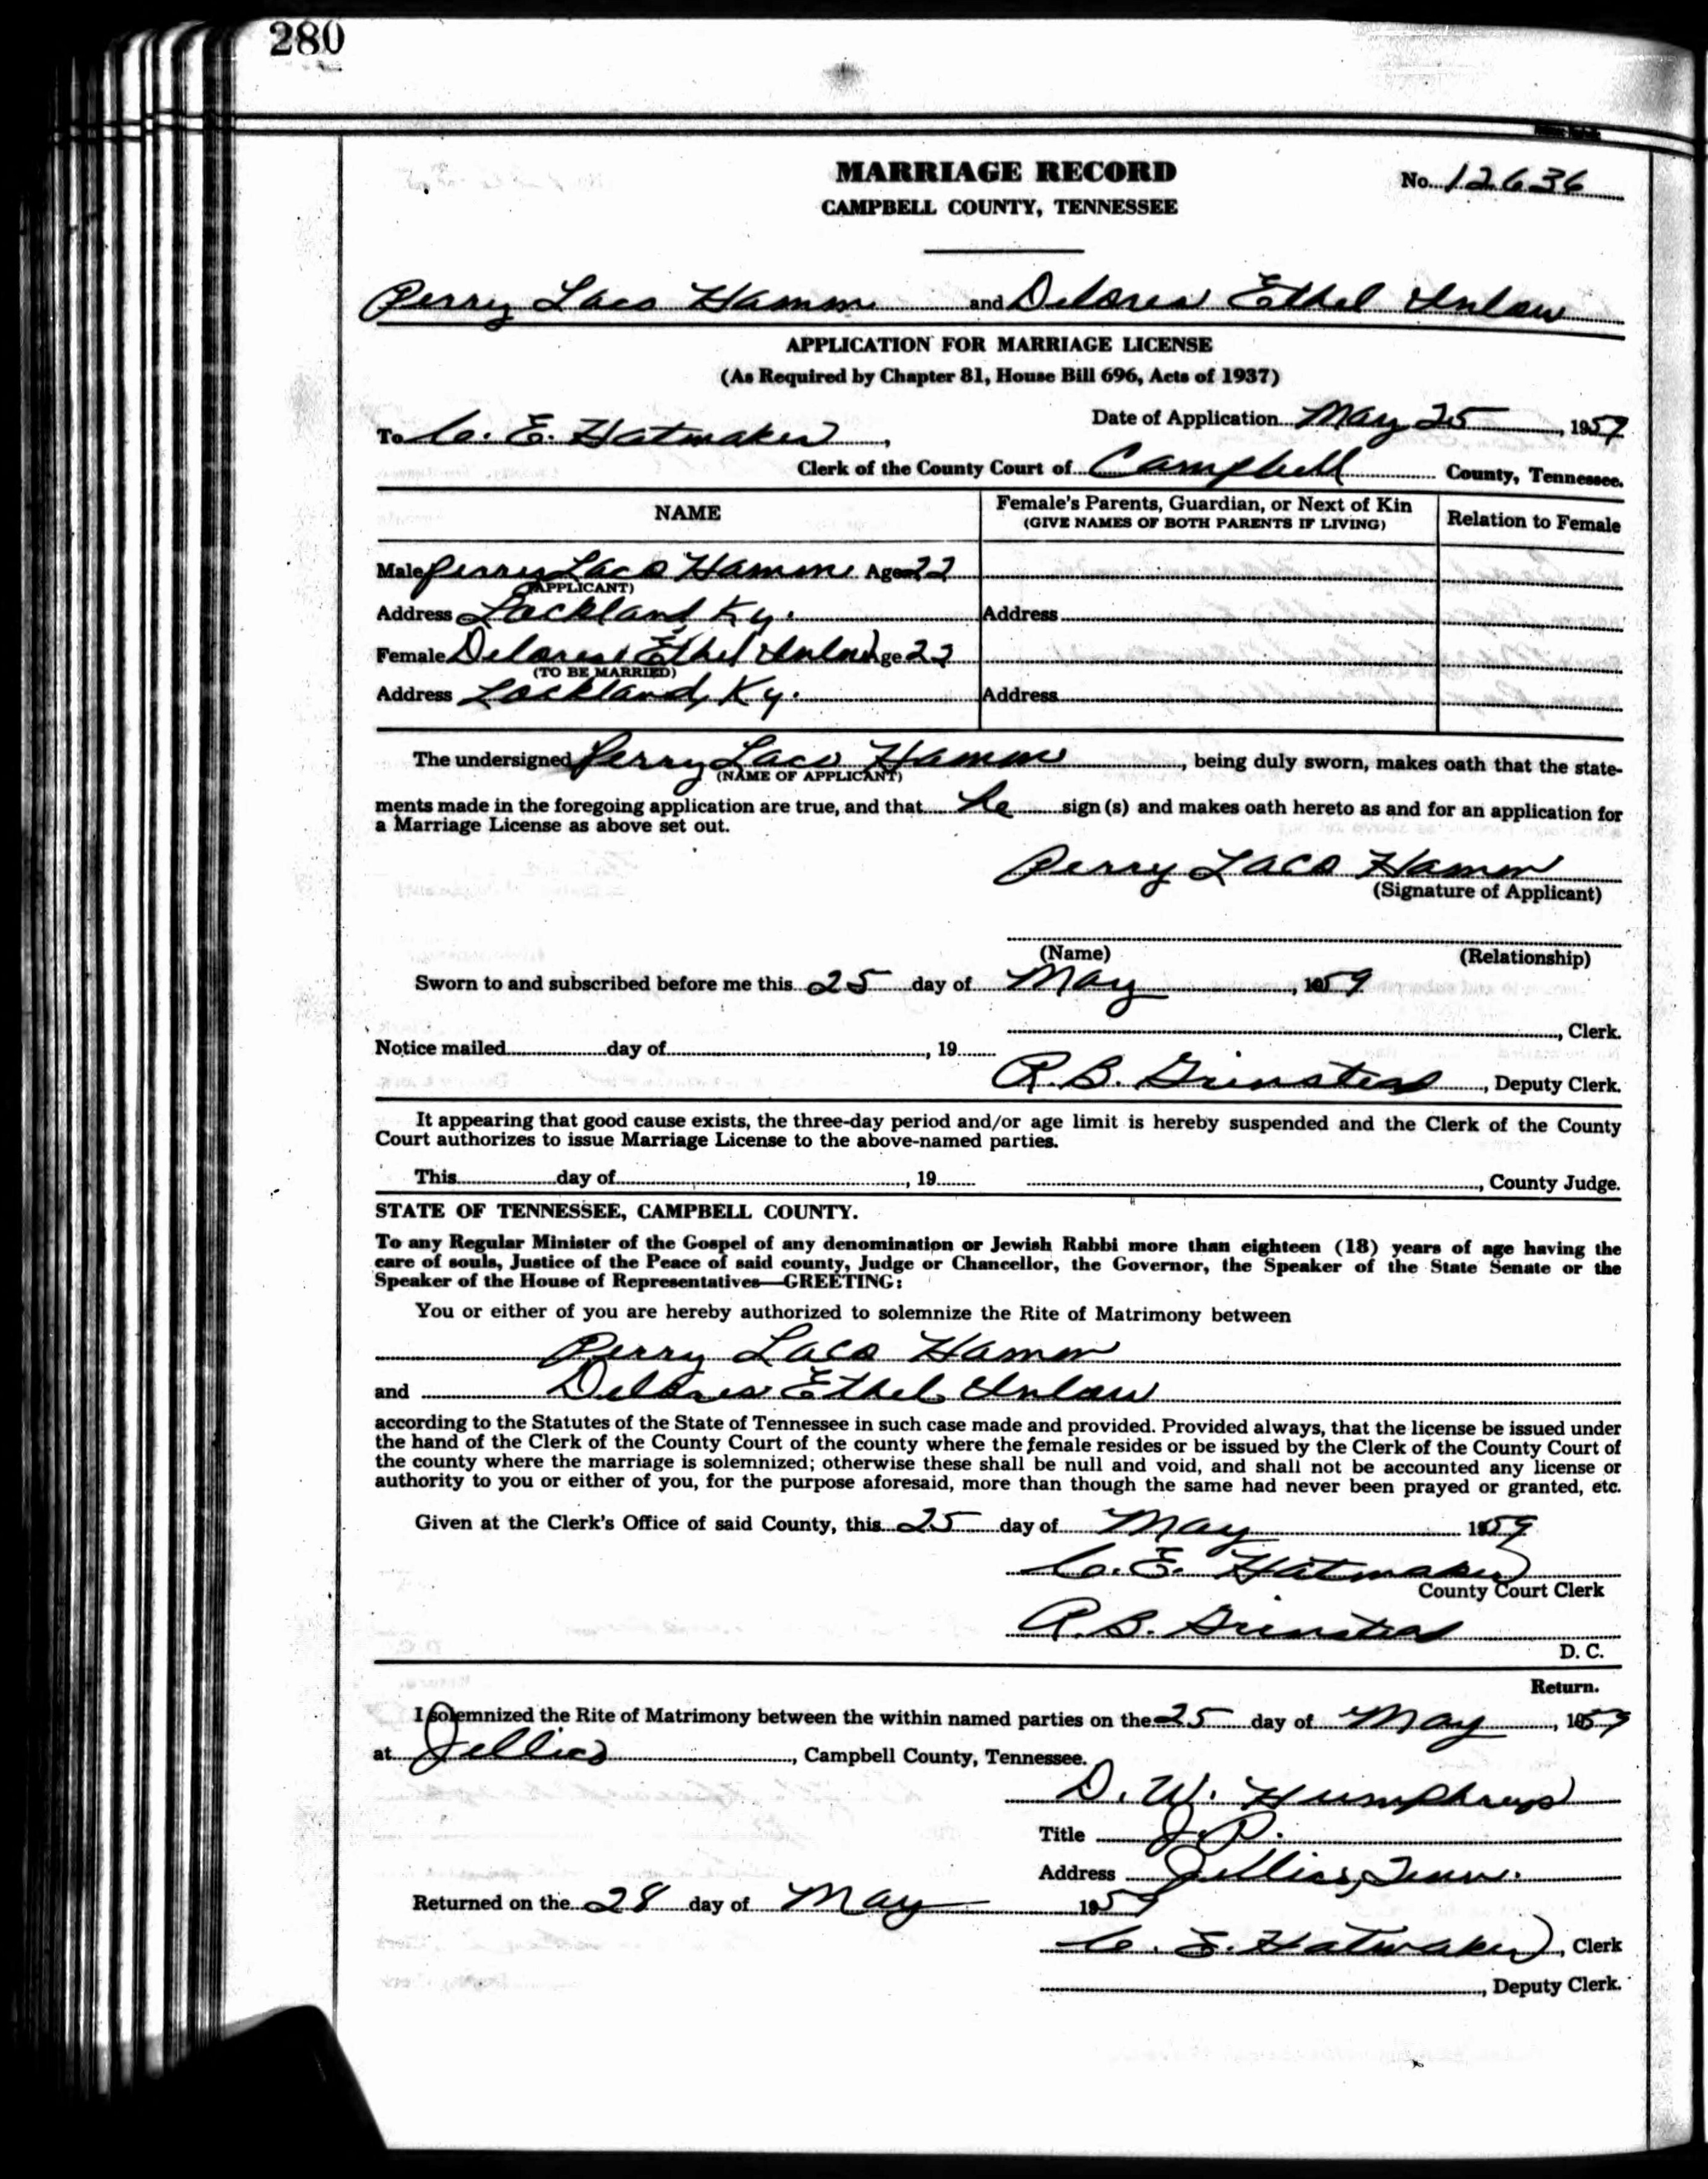 280
MARRIAGE RECORD
No. 12636
CAMPBELL COUNTY, TENNESSEE
Perry Laco Hamm and Delores Ethel Inlow
APPLICATION FOR MARRIAGE LICENSE
(As Required by Chapter 81, House Bill 696, Acts of 1937)
Date of Application May 25, 1959
To C. E. Hatmaker,
Clerk of the County Court of Campbell County, Tennessee.
NAME
Female's Parents, Guardian, or Next of Kin
(GIVE NAMES OF BOTH PARENTS IF LIVING)
Relation to Female
Male Perry Laco Hamm Age 22
(APPLICANT)
Address Lockland, Ky. Address
Female Delores Ethel Inlow Age 22
(TO BE MARRIED)
Address Lockland, Ky. Address
The undersigned Perry Laco Hamm, being duly sworn, makes oath that the state-
(NAME OF APPLICANT)
ments made in the foregoing application are true, and that he sign (s) and makes oath hereto as and for an application for
a Marriage License as above set out.
Perry Laco Hamm
(Signature of Applicant)
(Name) (Relationship)
Sworn to and subscribed before me this 25 day of May, 1959
, Clerk.
Notice mailed day of , 19
R. B. Grinstead, Deputy Clerk.
It appearing that good cause exists, the three-day period and/or age limit is hereby suspended and the Clerk of the County
Court authorizes to issue Marriage License to the above-named parties.
This day of , 19 , County Judge.
STATE OF TENNESSEE, CAMPBELL COUNTY.
To any Regular Minister of the Gospel of any denomination or Jewish Rabbi more than eighteen (18) years of age having the
care of souls, Justice of the Peace of said county, Judge or Chancellor, the Governor, the Speaker of the State Senate or the
Speaker of the House of Representatives—GREETING:
You or either of you are hereby authorized to solemnize the Rite of Matrimony between
Perry Laco Hamm
and Delores Ethel Inlow
according to the Statutes of the State of Tennessee in such case made and provided. Provided always, that the license be issued under
the hand of the Clerk of the County Court of the county where the female resides or be issued by the Clerk of the County Court of
the county where the marriage is solemnized; otherwise these shall be null and void, and shall not be accounted any license or
authority to you or either of you, for the purpose aforesaid, more than though the same had never been prayed or granted, etc.
Given at the Clerk's Office of said County, this 25 day of May 1959
C. E. Hatmaker
County Court Clerk
R. B. Grinstead
D. C.
Return.
I solemnized the Rite of Matrimony between the within named parties on the 25 day of May, 1959
at Jellico, Campbell County, Tennessee.
D. W. Humphreys
Title J. P.
Address Jellico, Tenn.
Returned on the 28 day of May 1959
C. E. Hatmaker, Clerk
, Deputy Clerk.